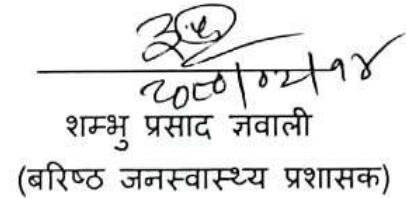 २०८०/०२/१४
शम्भु प्रसाद ज्ञवाली
(बरिष्ठ जनस्वास्थ्य प्रशासक)